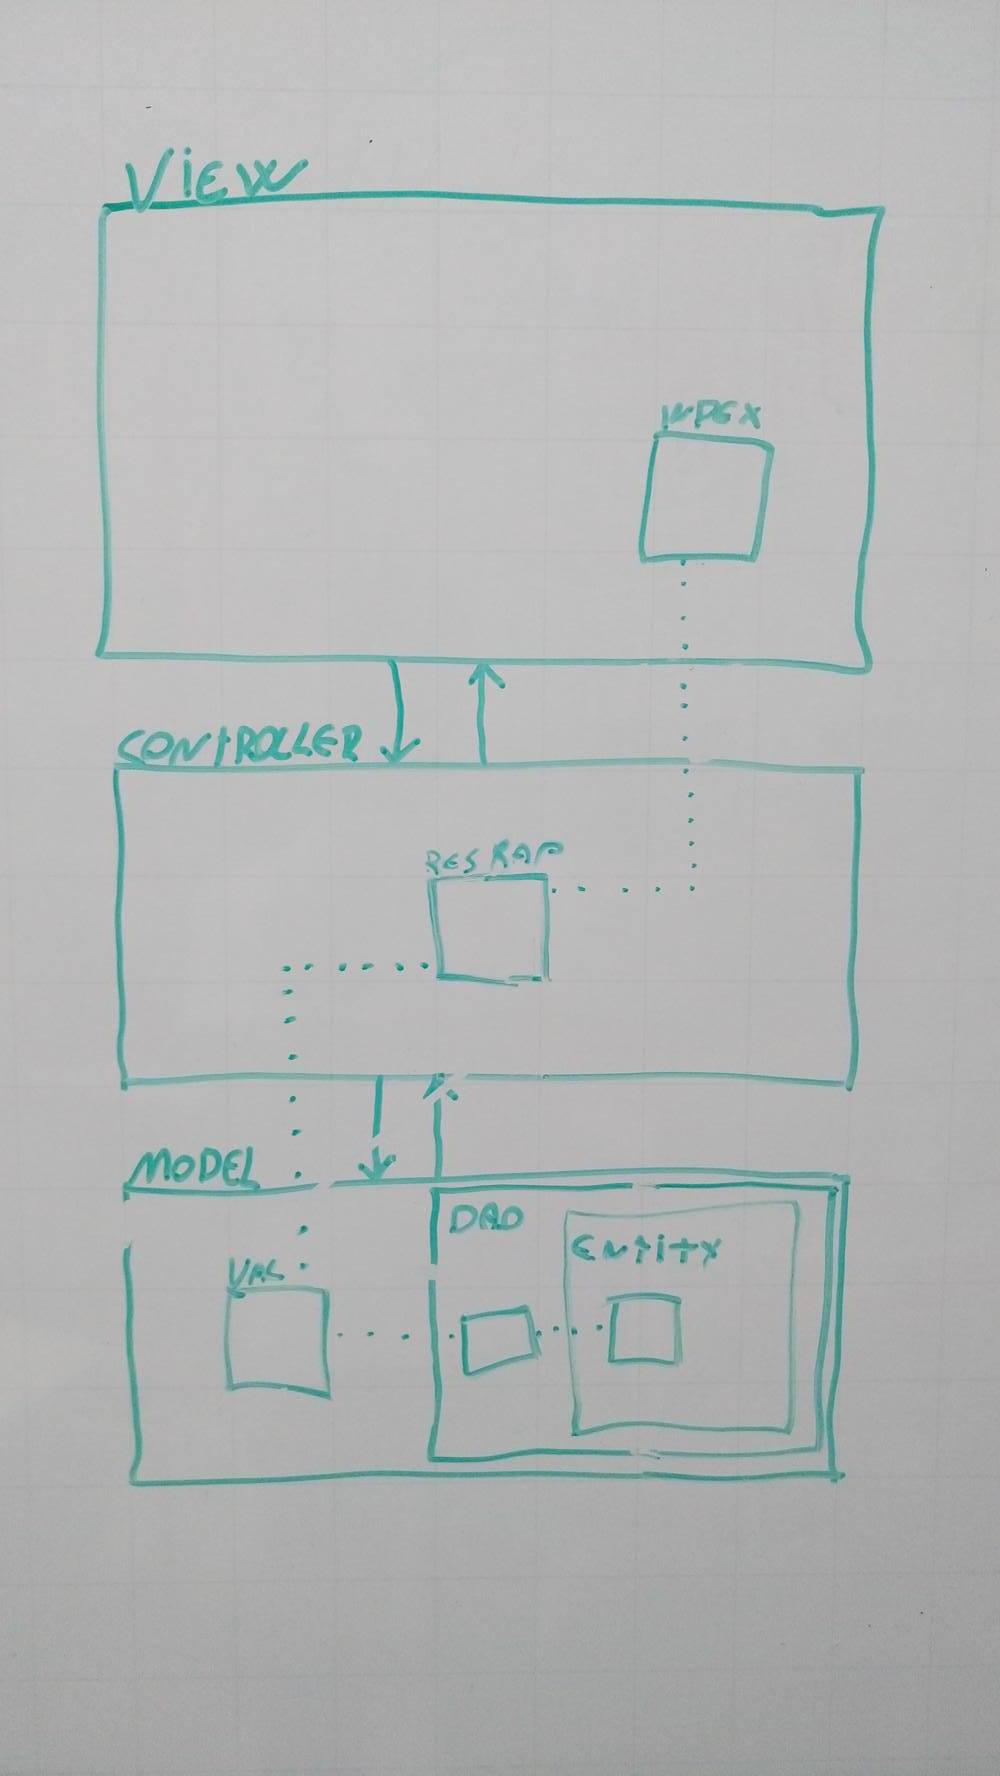 VIEW
INDEX
CONTROLLER
RES RAP
MODEL
DAO
ENTITY
VAL